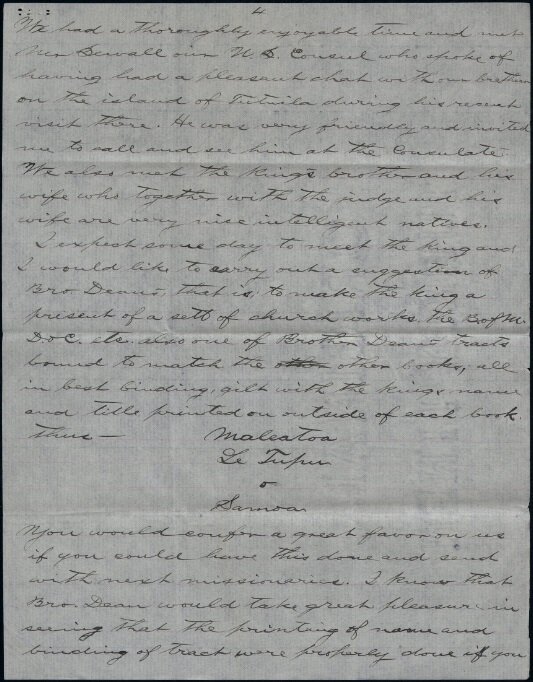 4
We had a thoroughly enjoyable time and met
Mr Sewall our U.S. Consul who spoke of
having had a pleasant chat with our brethren
on the island of Tutuila during his recent
visit there. He was very friendly and invited
me to call and see him at the Consulate.
We also met the Kings brother and his
wife who together with the judge and his
wife are very nice intelligent natives.
I expect some day to meet the King and
I would like to carry out a suggestion of
Bro Deans, that is, to make the King a
present of a sett of church works, the B of M.
D & C. etc. also one of Brother Deans tracts
bound to match the other other books, all
in best binding, gilt with the Kings name
and title printed on outside of each book.
Thus — Maleatoa
Le Tupu
o
Samoa
You would confer a great favor on us
if you could have this done and send
with next missionaries. I know that
Bro. Dean would take great pleasure in
seeing that the printing of name and
binding of tract were properly done if you